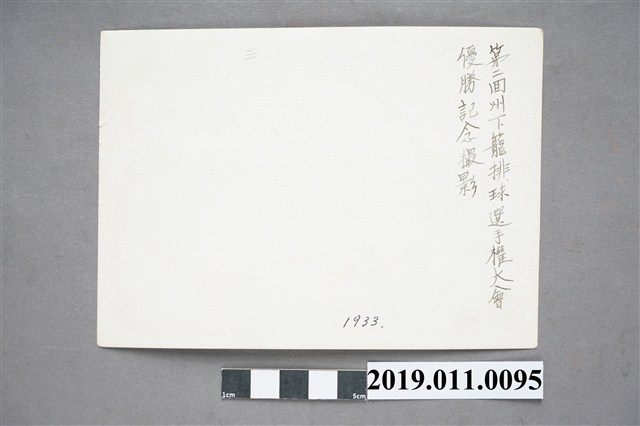 第二回州下籠排球選手權大會
優勝記念撮影
二
1933.
1cm
5cm
2019.011.0095